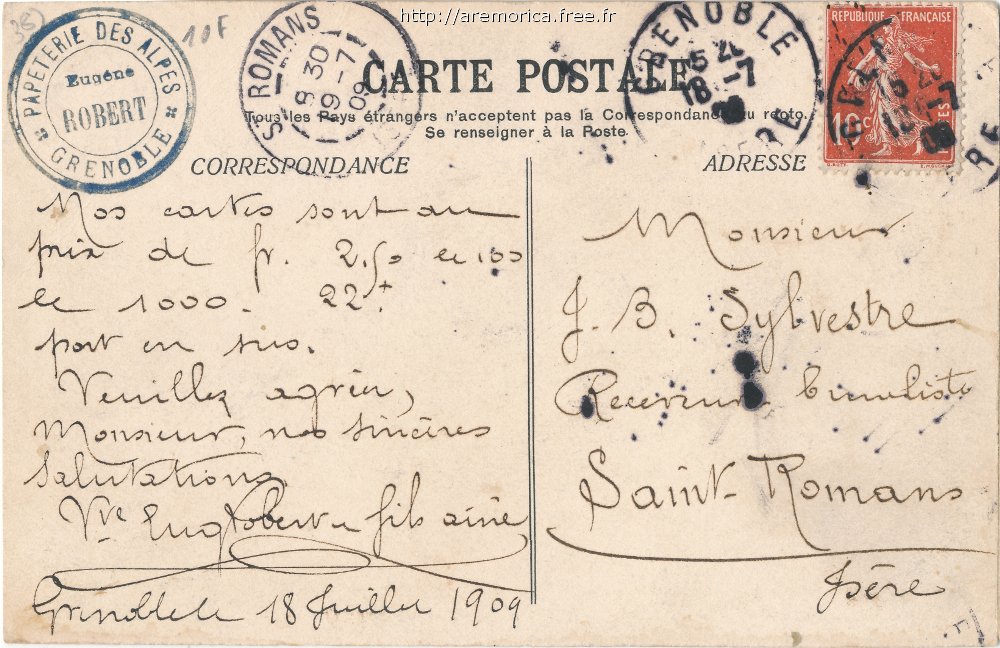 http://aremorica.free.fr
38
10F
PAPETERIE DES ALPES
Eugène
ROBERT
GRENOBLE
ST ROMANS
8 30
19 -7
09
GRENOBLE
15
18 -7
09
ISERE
RÉPUBLIQUE FRANÇAISE
10 c
POSTES
CARTE POSTALE
Tous les Pays étrangers n'acceptent pas la Correspondance au recto.
Se renseigner à la Poste.
CORRESPONDANCE
Nos cartes sont au
prix de fr. 2.50 le 100
le 1000. 22f
port en sus.
Veuillez agréer,
Monsieur, nos sincères
salutations.
Vve Eug Robert & fils ainé
Grenoble le 18 Juillet 1909
ADRESSE
Monsieur
J. B. Sylvestre
Receveur buraliste
Saint-Romans
Isère